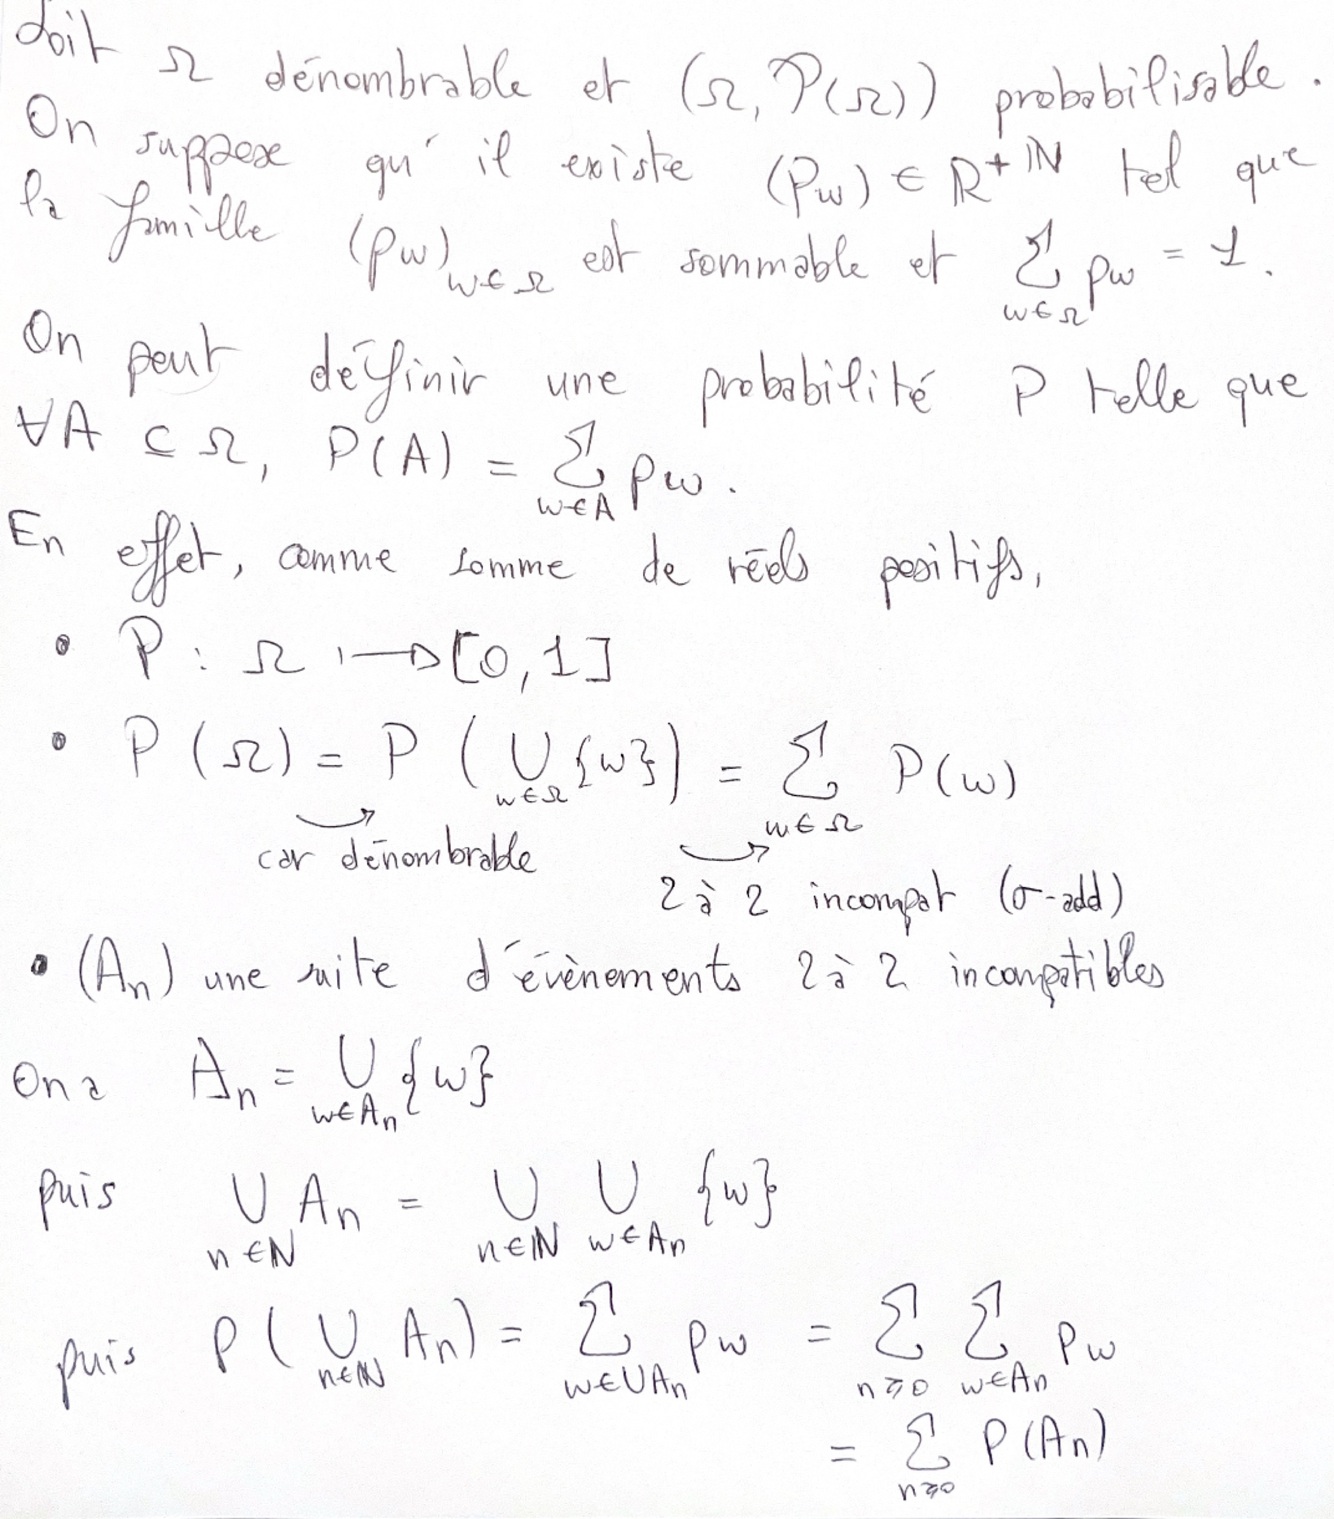 Soit Ω dénombrable et (Ω, P(Ω)) probabilisable.
On suppose qu'il existe (pω) ∈ ℝ⁺^ℕ tel que
la famille (pω)ω∈Ω est sommable et Σ pω = 1.
ω∈Ω
On peut définir une probabilité P telle que
∀A ⊆ Ω, P(A) = Σ pω.
ω∈A
En effet, comme somme de réels positifs,
• P : Ω ⟼ [0,1]
• P(Ω) = P(∪ {ω}) = Σ P(ω)
ω∈Ω ω∈Ω
car dénombrable
2 à 2 incompat (σ-add)
• (An) une suite d'évènements 2 à 2 incompatibles
On a An = ∪ {ω}
ω∈An
puis ∪ An = ∪ ∪ {ω}
n∈ℕ n∈ℕ ω∈An
puis P(∪ An) = Σ pω = Σ Σ pω
n∈ℕ ω∈∪An n⩾0 ω∈An
= Σ P(An)
n⩾0